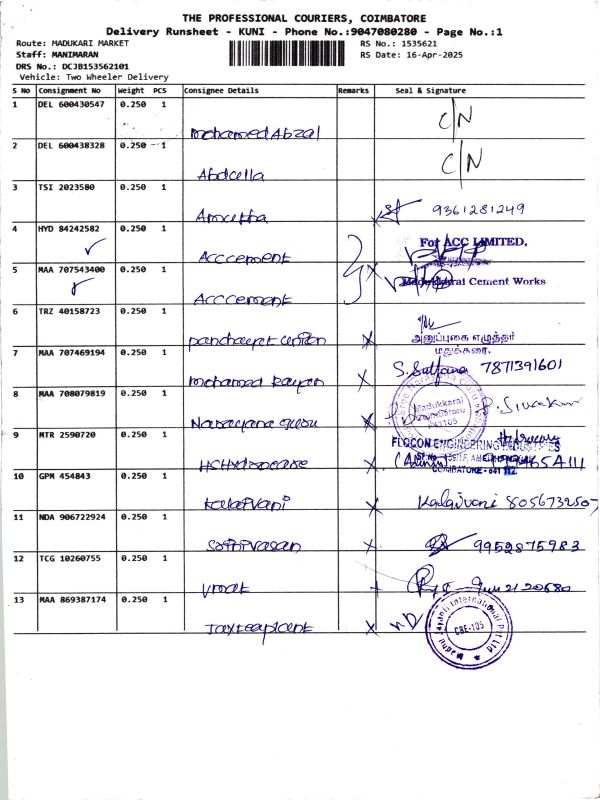 THE PROFESSIONAL COURIERS, COIMBATORE
Delivery Runsheet - KUNI - Phone No.:9047080280 - Page No.:1
Route: MADUKARI MARKET
RS No.: 1535621
Staff: MANIMARAN
RS Date: 16-Apr-2025
DRS No.: DCJB153562101
Vehicle: Two Wheeler Delivery
S No Consignment No Weight PCS Consignee Details Remarks Seal & Signature
1 DEL 600430547 0.250 1 Mohamed Abzal C/N
2 DEL 600438328 0.250 1 Abdulla C/N
3 TSI 2023580 0.250 1 9361281249
4 HYD 84242582 0.250 1 Acccement For ACC LIMITED,
5 MAA 707543400 0.250 1 Acccement Madukkarai Cement Works
6 TRZ 40158723 0.250 1 panchayat union
அனுப்புகை எழுத்தர்
மதுக்கரை.
7 MAA 707469194 0.250 1 mohamed 7871391601
8 MAA 708079819 0.250 1 Narayana guru
Madukkarai
641105
9 MTR 2590720 0.250 1
FLOCON ENGINEERING
COIMBATORE - 641
10 GPM 454843 0.250 1 kalaivani Kalaivani 8056732507
11 NDA 906722924 0.250 1 9952875983
12 TCG 10260755 0.250 1
13 MAA 869387174 0.250 1
International Pvt Ltd
CBE-105